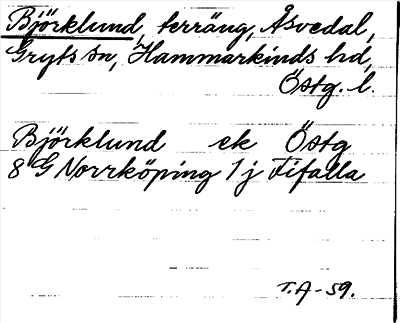 Björklund, terräng, Åsvedal,
Gryts sn, Hammarkinds hd,
Östg. l.
Björklund ek Östg
8 G Norrköping 1 j Fifalla
T.A-59.